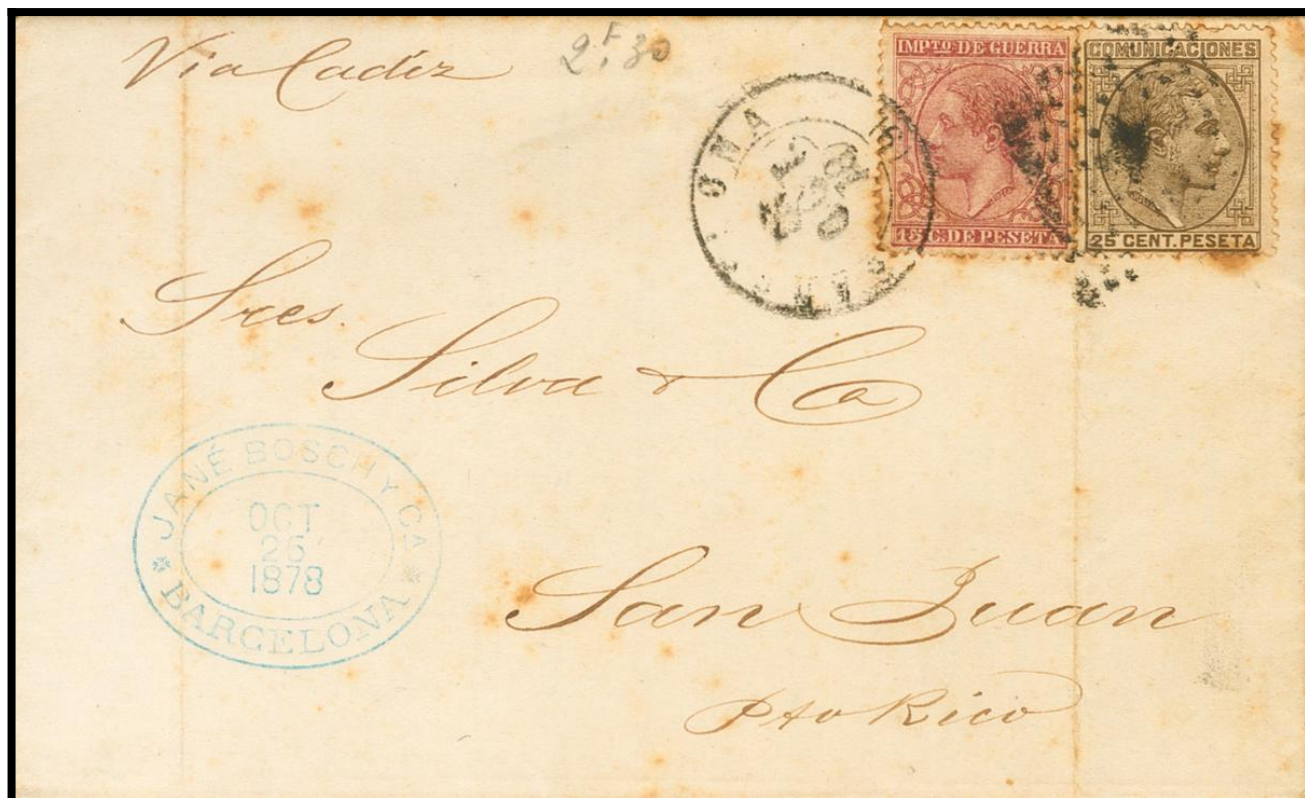 Via Cadiz
2F30
IMPTO. DE GUERRA
15 C. DE PESETA
COMUNICACIONES
25 CENT. PESETA
Sres.
Silva & Ca
JANÉ BOSCH Y CA
OCT
26
1878
BARCELONA
San Juan
Pto Rico